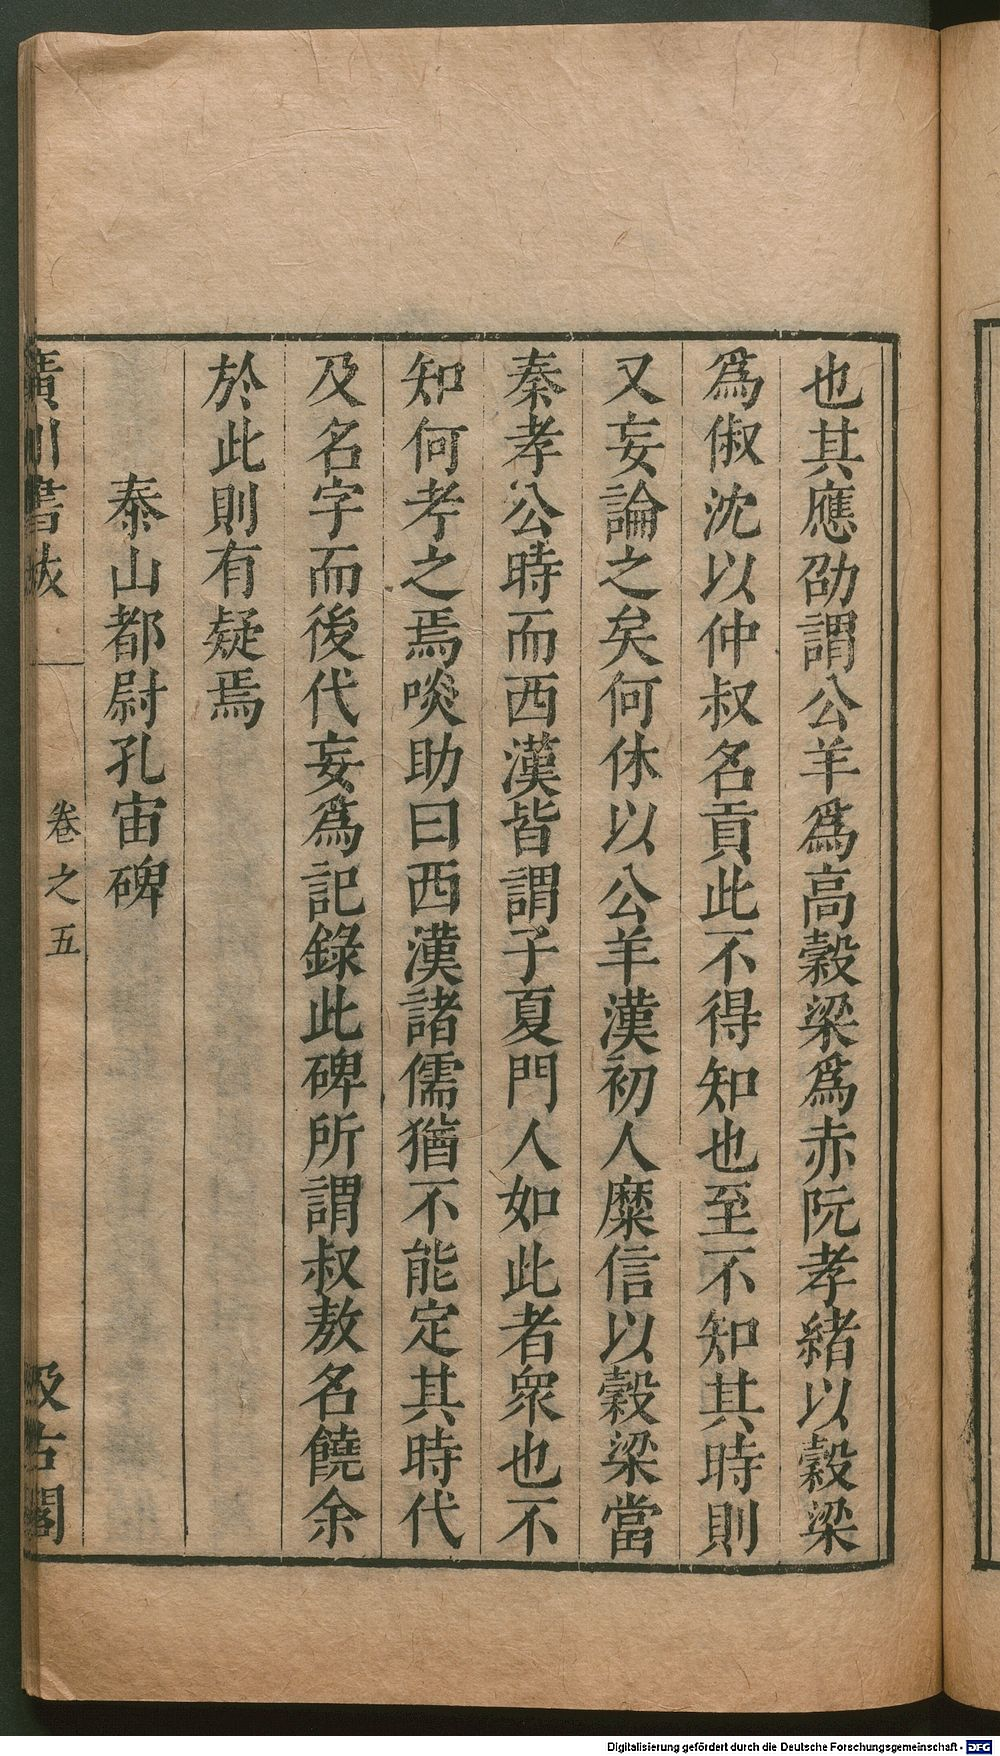 也其應劭謂公羊爲高穀梁爲赤阮孝緒以穀梁
爲俶沈以仲叔名貢此不得知也至不知其時則
又妄論之矣何休以公羊漢初人糜信以穀梁當
秦孝公時而西漢皆謂子夏門人如此者衆也不
知何考之焉啖助曰西漢諸儒猶不能定其時代
及名字而後代妄爲記錄此碑所謂叔敖名饒余
於此則有疑焉
泰山都尉孔宙碑
廣川書跋
卷之五
汲古閣
Digitalisierung gefördert durch die Deutsche Forschungsgemeinschaft - DFG